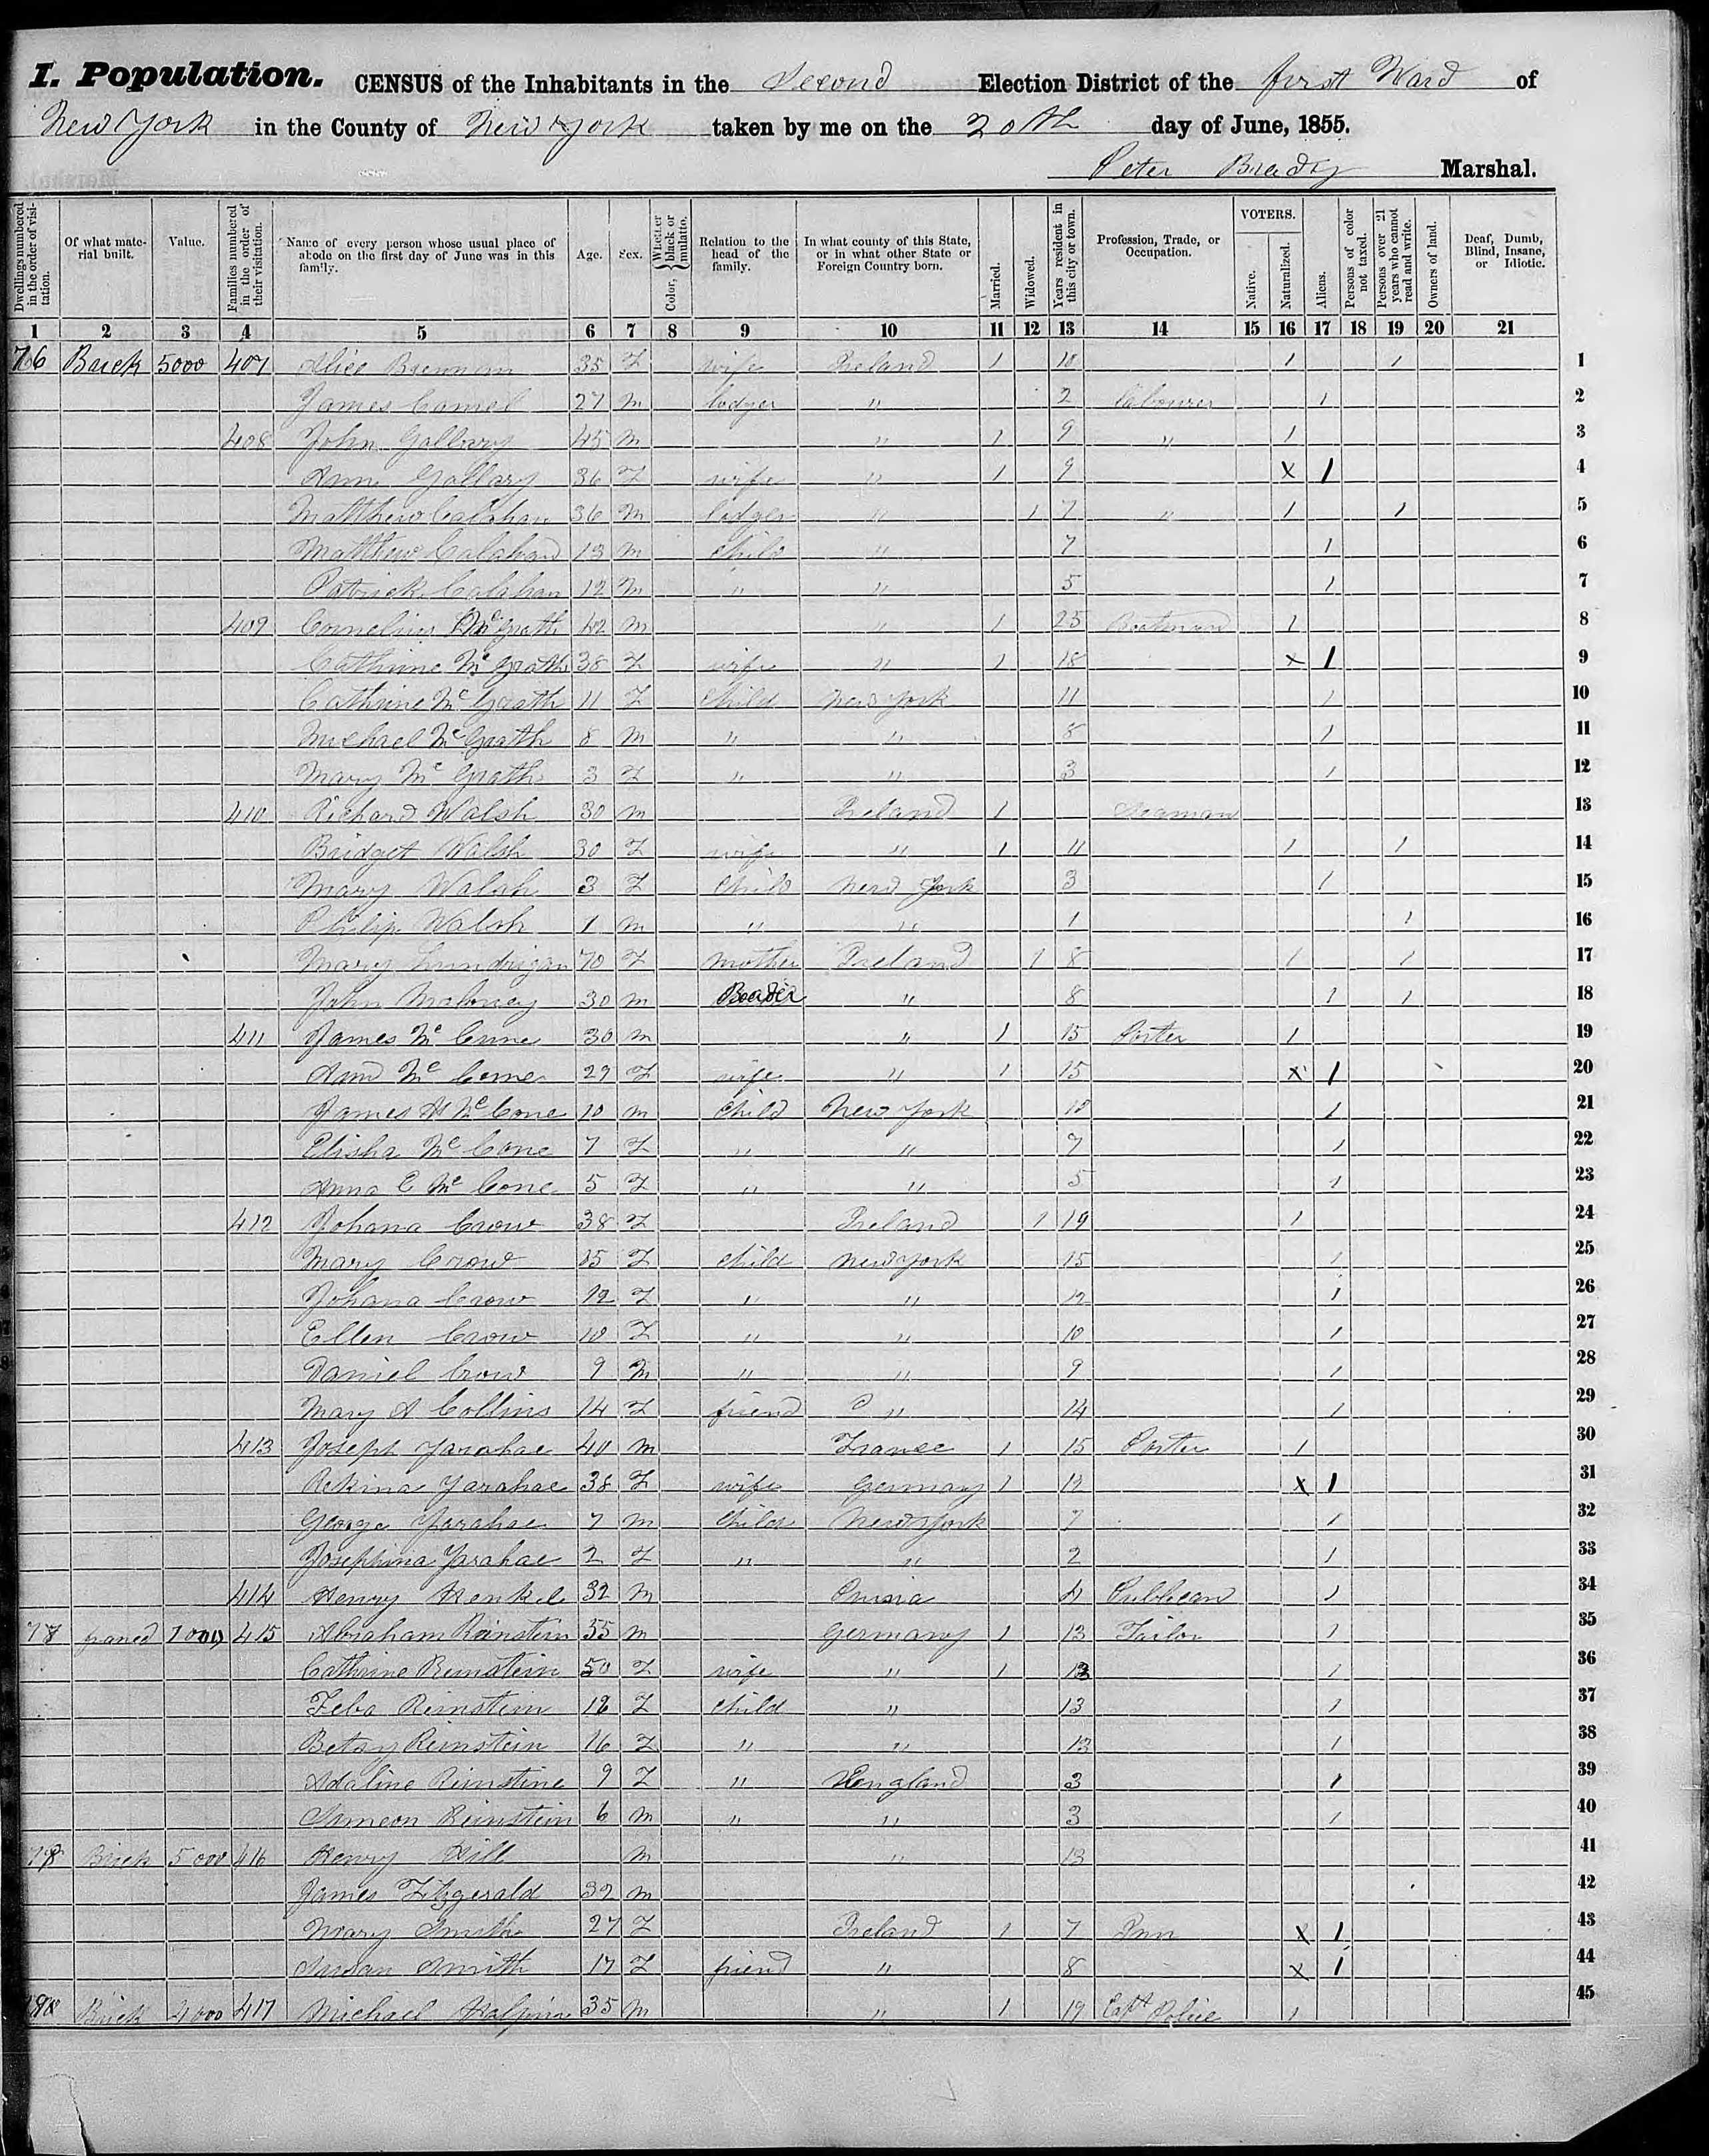 I. Population. CENSUS of the Inhabitants in the Second Election District of the first Ward of
New York in the County of New York taken by me on the 20th day of June, 1855.
Peter Brady Marshal.
Dwellings numbered in the order of visitation. Of what material built. Value. Families numbered in the order of their visitation. Name of every person whose usual place of abode on the first day of June was in this family. Age. Sex. Color, Whether black or mulatto. Relation to the head of the family. In what county of this State, or in what other State or Foreign Country born. Married. Widowed. Years resident in this city or town. Profession, Trade, or Occupation. VOTERS. Native. Naturalized. Aliens. Persons of color not taxed. Persons over 21 years who cannot read and write. Owners of land. Deaf, Dumb, Blind, Insane, or Idiotic.
1 2 3 4 5 6 7 8 9 10 11 12 13 14 15 16 17 18 19 20 21
76 Brick 5000 407 Alice 35 F wife Ireland 1 10 1 1 1
James 27 m lodger " 2 Labourer 1 2
408 John Gallary 45 m " 1 9 " 1 3
Ann Gallary 36 F wife " 1 9 x 1 4
Matthew Calahan 36 m lodger " 1 7 " 1 1 5
Matthew Calahan 13 m child " 7 1 6
Patrick Calahan 12 m " " 5 1 7
409 Cornelius McGrath 42 m " 1 25 Boatman 1 8
Cathrine McGrath 38 F wife " 1 18 x 1 9
Cathrine McGrath 11 F child New York 11 1 10
Michael McGrath 8 m " " 8 1 11
Mary McGrath 3 F " " 3 1 12
410 Richard Walsh 30 m Ireland 1 Seaman 13
Bridget Walsh 30 F wife " 1 11 1 1 14
Mary Walsh 3 F child New York 3 1 15
Philip Walsh 1 m " " 1 1 16
Mary Lundrigan 70 F mother Ireland 1 8 1 1 17
John Maloney 30 m Boader " 8 1 1 18
411 James Mc Cune 30 m " 1 15 Porter 1 19
Ann Mc Cone 29 F wife " 1 15 x 1 20
James H Mc Cone 10 m child New York 10 1 21
Elisha Mc Cone 7 F " " 7 1 22
Anna E Mc Cone 5 F " " 5 1 23
412 Johana Crow 38 F Ireland 1 19 1 24
Mary Crow 15 F child New York 15 1 25
Johana Crow 12 F " " 12 1 26
Ellen Crow 10 F " " 10 1 27
Daniel Crow 9 m " " 9 1 28
Mary A Collins 14 F friend " 14 1 29
413 Joseph Yarahae 40 m France 1 15 Porter 1 30
Yarahae 38 F wife Germany 1 12 x 1 31
George Yarahae 7 m child New York 7 1 32
Josephina Yarahae 2 F " " 2 1 33
414 Henry Henkel 32 m 4 Publican 1 34
framed 415 Abraham Reinstein 55 m Germany 1 13 Tailor 1 35
Cathrine Reinstein 50 F wife " 1 13 1 36
Feba Reinstein 18 F child " 13 1 37
Betsy Reinstein 16 F " " 13 1 38
Adaline Reinstine 9 F " England 3 1 39
Reinstein 6 m " " 3 1 40
Brick 5000 416 Henry Hill m " 13 41
James Fitzgerald 32 m 42
Mary Smith 27 F Ireland 1 7 x 1 43
Susan Smith 17 F friend " 8 x 1 44
Brick 4000 417 Michael Halpin 35 m " 1 19 Capt Police 1 45